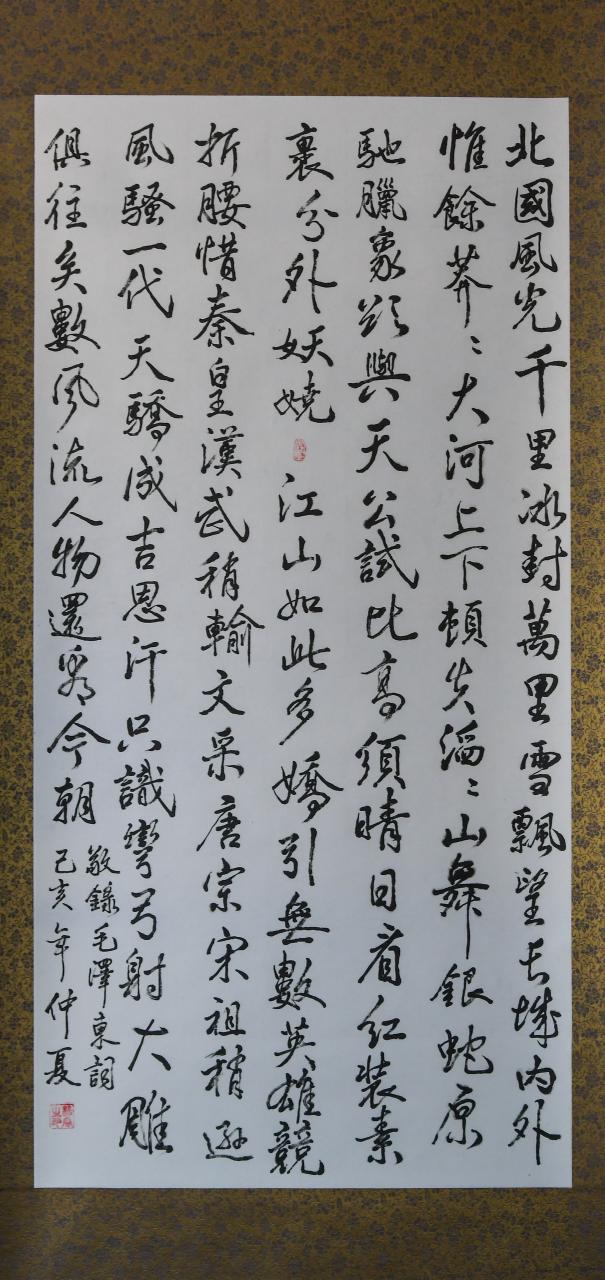 北國風光千里冰封萬里雪飄望長城内外
惟餘莽〻大河上下頓失滔〻山舞銀蛇原
馳臘象欲與天公試比高須晴日看红装素
裹分外妖嬈江山如此多嬌引無數英雄競
折腰惜秦皇漢武稍輸文采唐宗宋祖稍遜
風騷一代天驕成吉思汗只識彎弓射大雕
俱往矣數風流人物還看今朝
敬錄毛澤東詞
己亥年仲夏